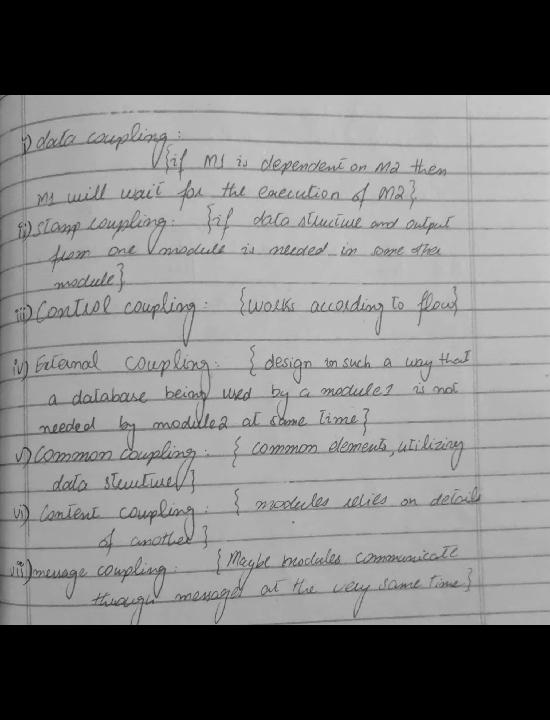 i) data coupling:
{if M1 is dependent on M2 then
M1 will wait for the execution of M2}
ii) stamp coupling: {if data structure and output
from one module is needed in some other
module}
iii) Control coupling: {works according to flow}
iv) External coupling: {design in such a way that
a database being used by a module1 is not
needed by module2 at same time}
v) Common coupling: {common elements, utilizing
data structure}
vi) Content coupling: {modules relies on details
of another}
vii) message coupling: {Maybe modules communicate
through messages at the very same time}